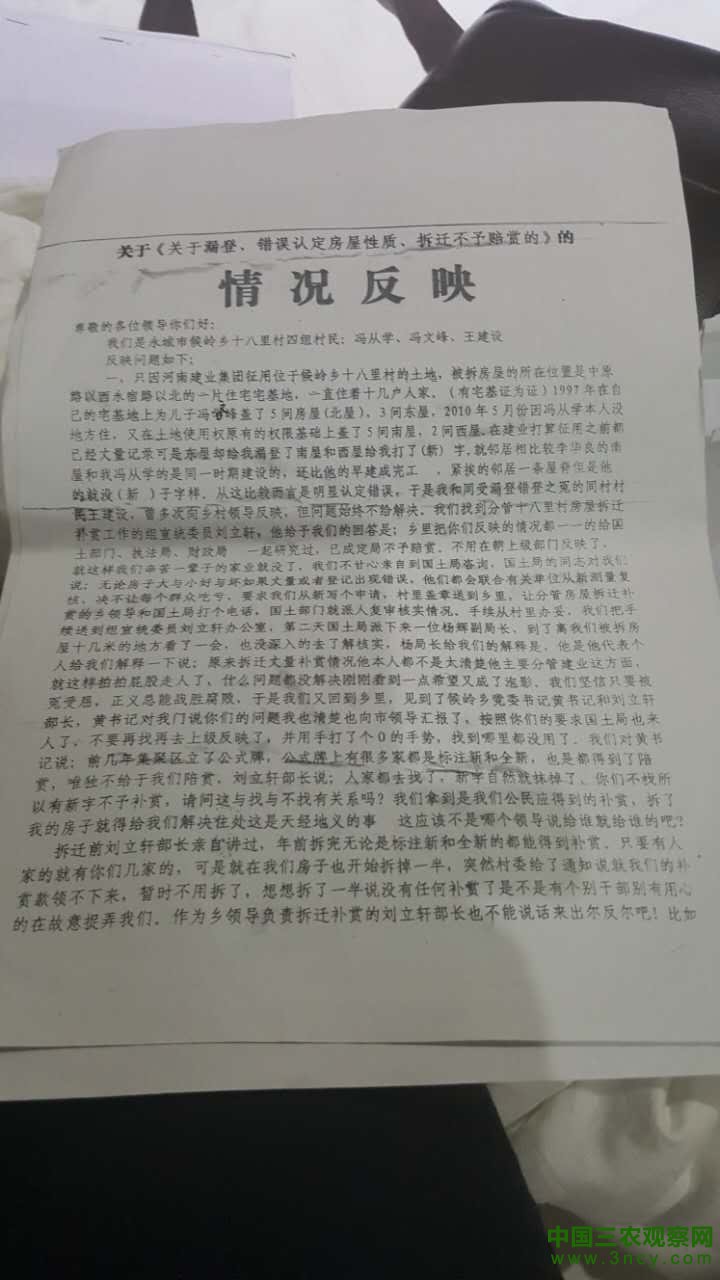 关于《关于漏登、错误认定房屋性质、拆迁不予赔赏的》的
情况反映
尊敬的各位领导你们好：
我们是永城市候岭乡十八里村四组村民：冯从学、冯文峰、王建设
反映问题如下：
一、只因河南建业集团征用位于候岭乡十八里村的土地，被拆房屋的所在位置是中原
路以西永宿路以北的一片住宅宅基地，一直住着十几户人家。（有宅基证为证）1997年在自
己的宅基地上为儿子冯文峰盖了5间房屋(北屋)，3间东屋，2010年5月份因冯从学本人没
地方住，又在土地使用权原有的权限基础上盖了5间南屋，2间西屋.在建业打算征用之前都
已经丈量记录可是东屋却给我漏登了南屋和西屋给我打了(新）字.就邻居相比较李华良的南
屋和我冯从学的是同一时期建设的，还比他的早建成完工 ，紧挨的邻居一条屋脊但是他
的就没（新 ）子字样．从这比较而言是明显认定错误。于是我和同受漏登错登之冤的同村村
民王建设，曾多次向乡村领导反映，但问题始终不给解决。我们找到分管十八里村房屋拆迁
补赏工作的组宣统委员刘立轩，他给于我们的回答是：乡里把你们反映的情况都一一的给国
土部门、执法局、财政局 一起研究过，已成定局不予赔赏．不用在朝上级部门反映了。
就这样我们辛苦一辈子的家业就没了，我们不甘心亲自到国土局咨询，国土局的同志对我们
说：无论房子大与小好与坏如果丈量或者登记出现错误，他们都会联合有关单位从新测量复
核，决不让每个群众吃亏，要求我们从新写个申请，村里盖章送到乡里，让分管房屋拆迁补
赏的乡领导和国土局打个电话，国土部门就派人复审核实情况．手续从村里办妥，我们把手
续送到组宣统委员刘立轩办公室，第二天国土局派下来一位杨辉副局长，到了离我们被拆房
屋十几米的地方看了一会，也没深入的去了解核实，杨局长给我们的解释是，他是他代表个
人给我们解释一下说：原来拆迁丈量补赏情况他本人都不是太清楚他主要分管建业这方面，
就这样拍拍屁股走人了、什么问题都没解决刚刚看到一点希望又成了泡影．我们坚信只要被
冤受屈，正义总能战胜腐败，于是我们又回到乡里，见到了候岭乡党委书记黄书记和刘立轩
部长，黄书记对我门说你们的问题我也清楚也向市领导汇报了，按照你们的要求国土局也来
人了，不要再找再去上级反映了，并用手打了个0的手势，找到哪里都没用了．我们对黄书
记说：前几年集聚区立了公式牌，公式牌上有很多家都是标注新和全新，也是都得到了陪
赏，唯独不给于我们陪赏．刘立轩部长说；人家都去找了，新字自然就抹掉了、你们不找所
以有新字不予补赏，请问这与找与不找有关系吗？我们拿到是我们公民应得到的补赏，拆了
我的房子就得给我们解决住处这是天经地义的事 这应该不是哪个领导说给谁就给谁的吧？
拆迁前刘立轩部长亲自讲过，年前拆完无论是标注新和全新的都能得到补赏．只要有人
家的就有你们几家的，可是就在我们房子也开始拆掉一半，突然村委给了通知说就我们的补
赏款领不下来，暂时不用拆了，想想拆了一半说没有任何补赏了是不是有个别干部别有用心
的在故意捉弄我们．作为乡领导负责拆迁补赏的刘立轩部长也不能说话来出尔反尔吧！比如
中国三农观察网
www.3ncy.com